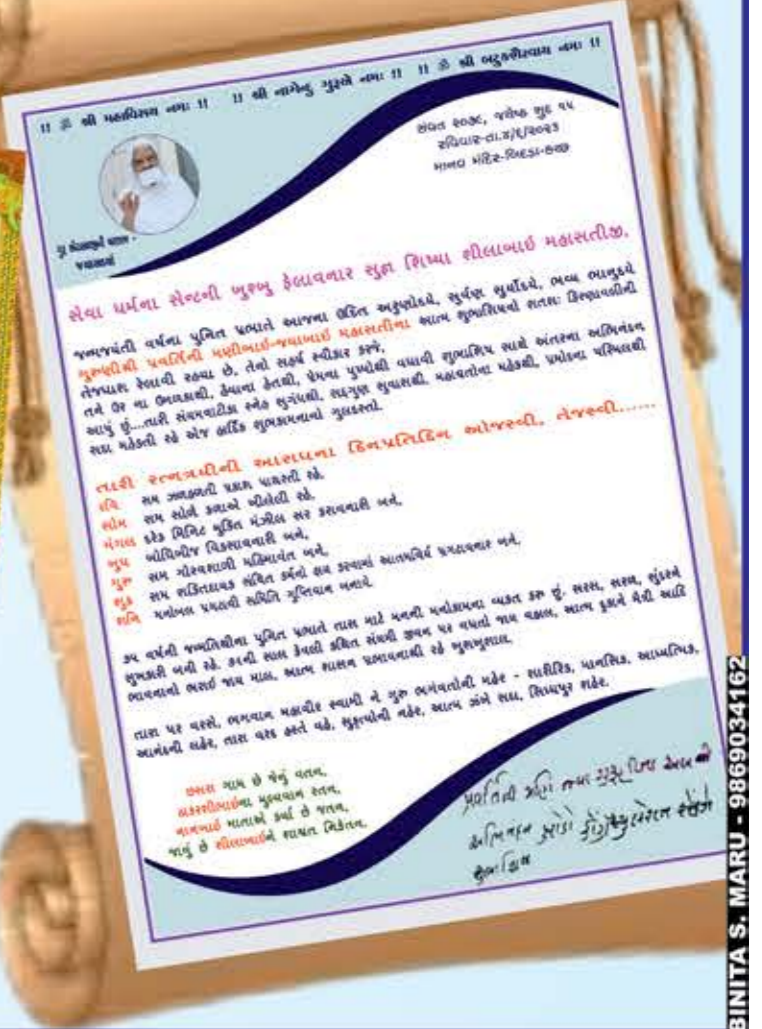 ॥ ૐ શ્રી મહાવિરાય નમઃ ॥ ॥ શ્રી નાગેન્દુ ગુરૂવે નમઃ ॥ ॥ ૐ શ્રી બટુકભૈરવાય નમઃ ॥
સંવત ૨૦૭૯, જયેષ્ઠ સુદ ૧૫
રવિવાર-તા.૪/૬/૨૦૨૩
માનવ મંદિર-બિદડા-કચ્છ
સેવા ધર્મના સેન્ટની ખુશ્બુ ફેલાવનાર સુજ્ઞ શિષ્યા શીલાબાઈ મહાસતીજી,
જન્મજયંતી વર્ષના પુનિત પ્રભાતે આજના ઉદિત અરૂણોદયે, સુર્વણ સુર્યોદયે, ભવ્ય ભાનુદયે
ગુરુણીશ્રી પ્રવર્તિની મણીબાઈ-જયાબાઈ મહાસતીના આત્મ શુભાશિષનો શતસઃ કિરણાવલીની
તેજપાશ ફેલાવી રહયા છે, તેનો સહર્ષ સ્વીકાર કરજે,
તને ઉર ના ભાવ, હૈયાના હેતથી, પ્રેમના પુષ્પોથી વધાવી શુભાશિષ સાથે અંતરના અભિનંદન
આપું છું...તારી સંયમવાટીકા સ્નેહ સુગંધથી, સદગુણ સુવાસથી, મહાવ્રતોના મહેકથી, પ્રમોદના પરિમલથી
સદા મહેકતી રહે એજ હાર્દિક શુભકામનાનો ગુલદસ્તો.
તારી રત્નત્રયીની આરાધના દિનપ્રતિદિન ઓજસ્વી, તેજસ્વી......
રવિ સમ ઝળહળતી પ્રકાશ પાથરતી રહે,
સોમ સમ સોળે કળાએ ખીલેલી રહે,
મંગલ દરેક મિનિટ મુક્તિ મંઝીલ સર કરાવનારી બને,
બુધ બોધિબીજ વિકસાવનારી બને,
ગુરુ સમ ગૌરવશાળી મહિમાવંત બને,
શુક્ર સમ શક્તિદાયક સંચિત કર્મનો ક્ષય કરવાનાં આતમવિર્ય પ્રગટાવનાર બને,
શનિ મનોબલ પ્રગટાવી સમિતિ ગુપ્તિવાન બનાવે.
૩૫ વર્ષની જન્મતિથીના પુનિત પ્રભાતે તારા માટે મનની મનોકામના વ્યકત કરૂ છું. સરસ, સરળ, સુંદરને
સુખકારી બની રહે. ૩૫ની સાલ કેવલી કથિત સંયમી જીવન પર વધતો જાય વહાલ, આત્મ દુકાને મૈત્રી આદિ
ભાવનાનો ભરાઈ જાય માલ, આત્મ શાસન પ્રભાવનાથી રહે ખુશખુશાલ.
તારા પર વરસે, ભગવાન મહાવીર સ્વામી ને ગુરુ ભગવંતોની મહેર - શારીરિક, માનસિક, આધ્યાત્મિક,
આનંદની લહેર, તારા વરદ હસ્તે વહે, સુકૃત્યોની નહેર, આત્મ ઝંખે સદા, સિધ્ધપુર શહેર.
છસરા ગામ છે જેનું વતન,
ઠાકરશીભાઈના મુલ્યવાન રતન,
નાનબાઈ માતાએ કર્યા છે જતન,
જાવું છે શીલાબાઈને શાશ્વત નિકેતન.
BINITA S. MARU - 9869034162